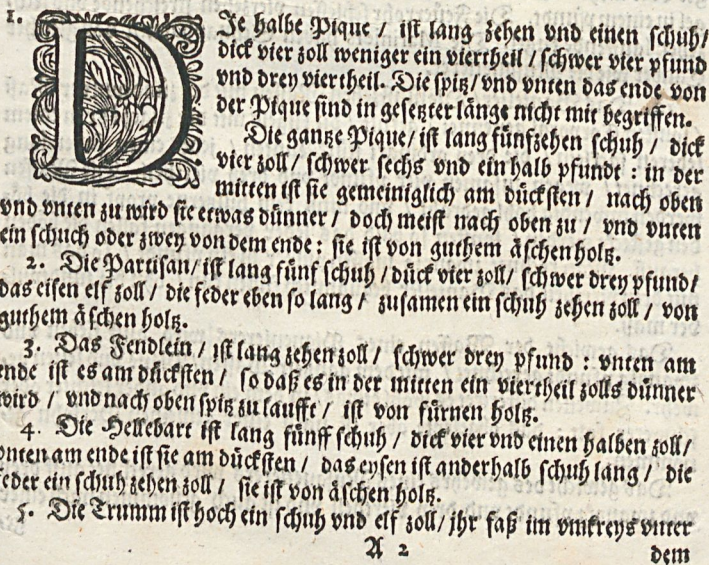 1. DIe halbe Pique / ist lang zehen vnd einen schuh/
dick vier zoll weniger ein viertheil / schwer vier pfund
vnd drey viertheil. Die spitz / vnd vnten das ende von
der Pique sind in gesetzter länge nicht mit begriffen.
Die gantze Pique / ist lang fünfzehen schuh / dick
vier zoll / schwer sechs vnd ein halb pfundt : in der
mitten ist sie gemeiniglich am dücksten / nach oben
vnd vnten zu wird sie etwas dünner / doch meist nach oben zu / vnd vnten
ein schuch oder zwey von dem ende : sie ist von guthem äschen holtz.
2. Die Partisan / ist lang fünf schuh / dück vier zoll / schwer drey pfund /
das eisen elf zoll / die feder eben so lang / zusamen ein schuh zehen zoll / von
guthem äschen holtz.
3. Das Fendlein / jst lang zehen zoll / schwer drey pfund : vnten am
ende ist es am dücksten / so daß es in der mitten ein viertheil zolls dünner
wird / vnd nach oben spitz zu laufft / ist von fürnen holtz.
4. Die Hellebart ist lang fünff schuh / dick vier vnd einen halben zoll /
vnten am ende ist sie am dücksten / das eysen ist anderhalb schuh lang / die
feder ein schuh zehen zoll / sie ist von äschen holtz.
5. Die Trumm ist hoch ein schuh vnd elf zoll / jhr faß im vmkreys vnter
A 2 dem